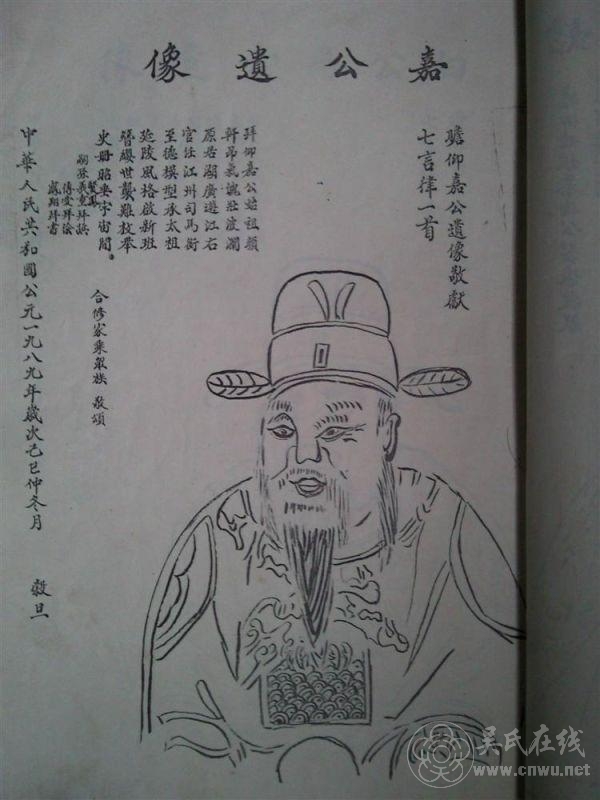 嘉公遺像
瞻仰嘉公遺像敬獻
七言律一首
拜仰嘉公始祖顏
軒昂氣魄壯波瀾
原居湖廣遊江右
官任江州司馬銜
至德模型承太祖
延陵風格啟新班
簪纓世襲難枚舉
史冊昭垂宇宙間。
合修家乘眾族 敬頌
嗣孫
中華人民共和國公元一九八九年歲次己巳仲冬月 穀旦
吴氏在线
www.cnwu.net